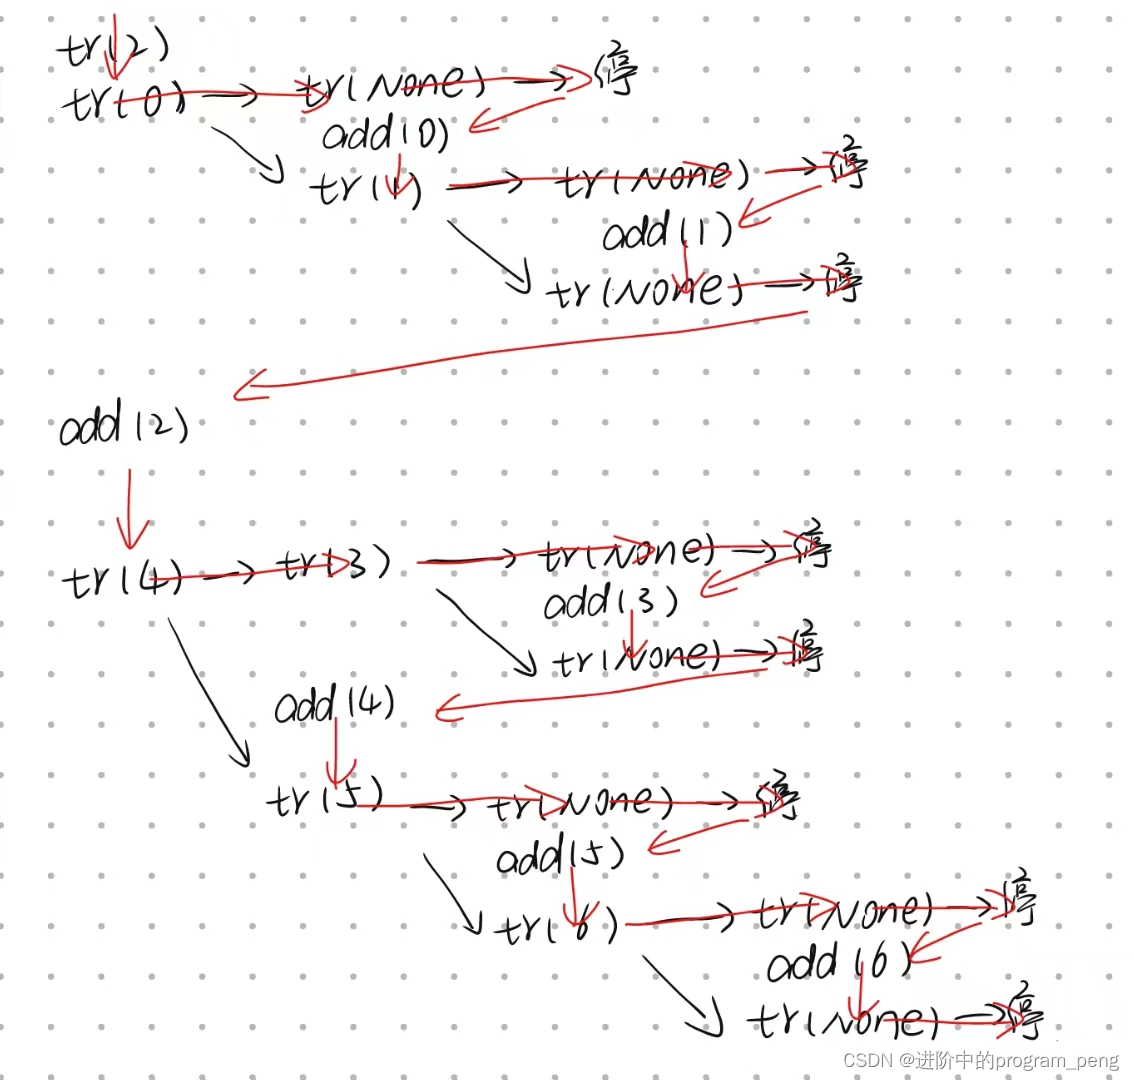 tr(2)
tr(0) → tr(None) → 停
2
add(0)
tr(1) → tr(None) → 停
2
add(1)
tr(None) → 停
2
add(2)
tr(4) → tr(3) → tr(None) → 停
2
add(3)
tr(None) → 停
2
add(4)
tr(5) → tr(None) → 停
2
add(5)
tr(6) → tr(None) → 停
2
add(6)
tr(None) → 停
2
CSDN @进阶中的program_peng